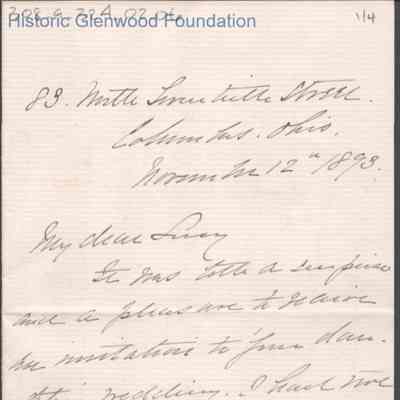 308.9.324.02.06
Historic Glenwood Foundation
1/4
83. North Twentieth Street.
Columbus. Ohio.
November 12th 1893.
My dear Lucy
It was both a surprise
and a pleasure to receive
an invitation to your dau-
wedding. I had not